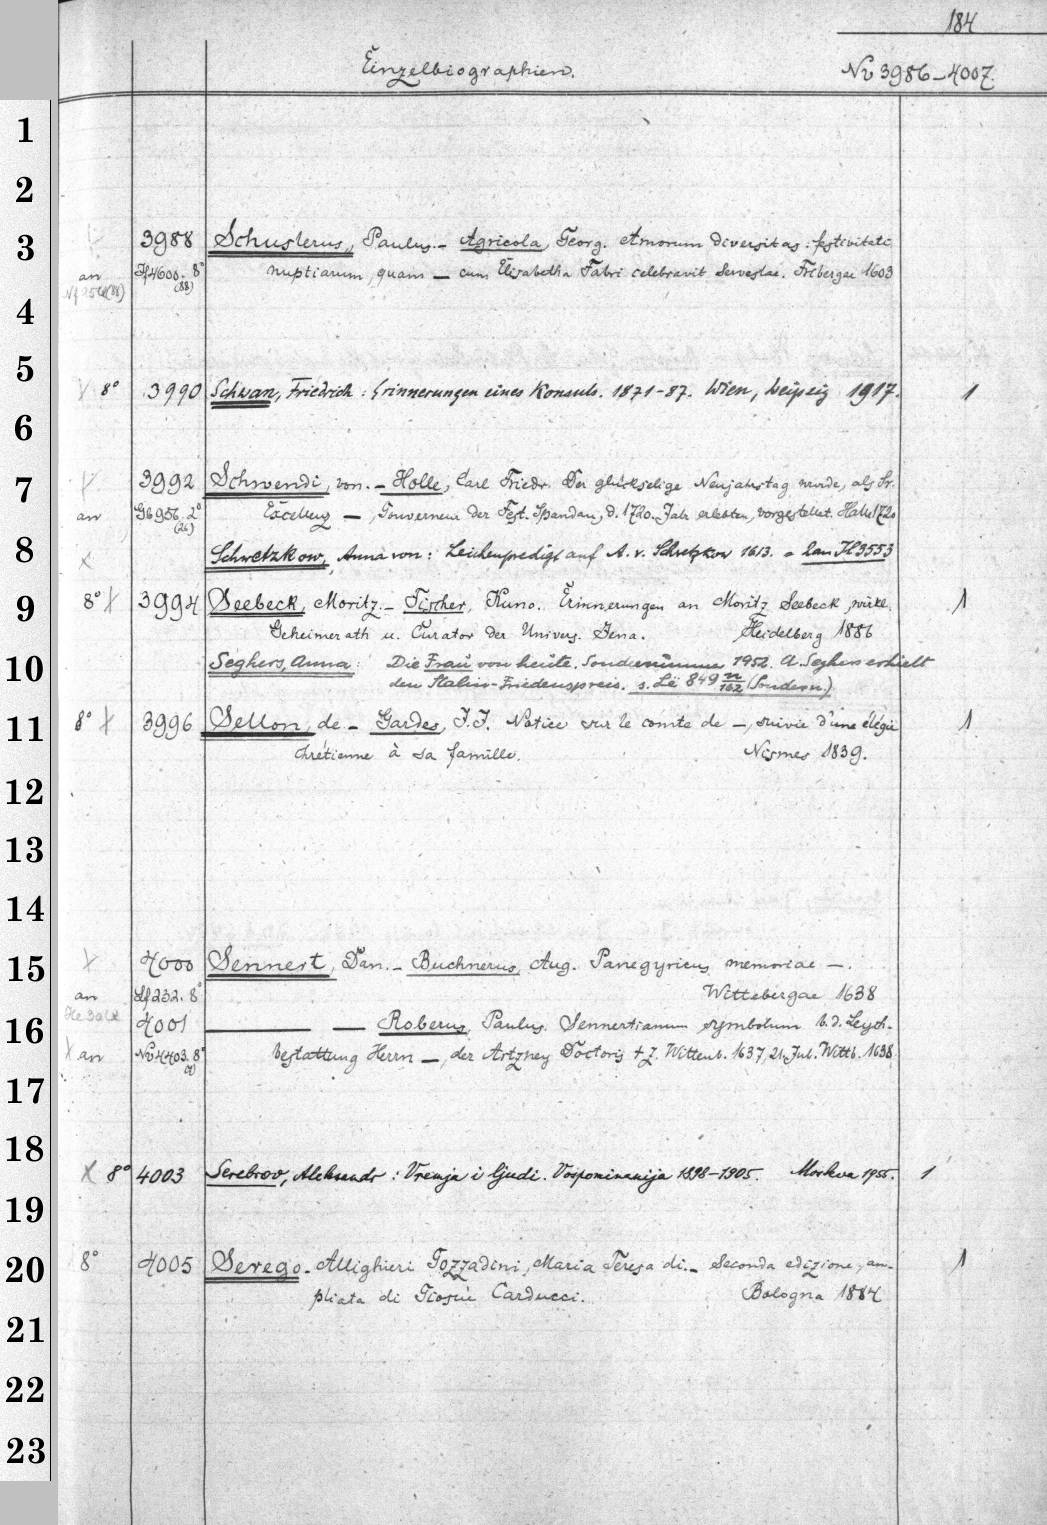 184
Einzelbiographien. Nv 3986–4007.
1
2
3 3988 Schusterus, Paulus. – Agricola, Georg. Amorum diversitas: festivitati
an 8° (88) nuptiarum, quam — cum Elisabetha Fabri celebravit Servestae. Fribergae 1603
4
5 8° 3990 Schwan, Friedrich: Erinnerungen eines Konsuls. 1871–87. Wien, Leipzig 1917. 1
6
7 3992 Schwendi, von. – Holle, Carl Friedr. Der glückselige Neujahrstag wurde, als Sr.
an 2° (26) Excellenz —, Gouverneur der Fest. Spandau, d. 1720. Jahr erlebten, vorgestellet. Halle 1720
8 Schwetzkow, Anna von: Leichenpredigt auf A. v. Schwetzkow 1613. 2 an Il 3553
9 8° 3994 Seebeck, Moritz. – Fischer, Kuno. Erinnerungen an Moritz Seebeck, wirkl. 1
Geheimerath u. Curator der Univers. Jena. Heidelberg 1886
10 Seghers, Anna: Die Frau von heute. Sondernummer 1952. A. Seghers erhielt
den Stalin-Friedenspreis. s. Lë 849 n/162 (Sondern.)
11 8° 3996 Sellon, de – Gardes, J. J. Notice sur le comte de —, suivie d'une élégie 1
chrétienne à sa famille. Nismes 1839.
12
13
14
15 4000 Sennert, Dan. – Buchnerus, Aug. Panegyricus memoriae —.
an Lf 232. 8° Wittebergae 1638
16 4001 — — Roberus, Paulus. Sennertianum symbolum b. d. Leych-
an Nv 4403. 8° bestattung Herrn —, der Artzney Doctoris † z. Wittenb. 1637, 21. Jul. Wittb. 1638.
17
18 8° 4003 Serebrov, Aleksandr: Vremja i ljudi. Vospominanija 1898–1905. Moskva 1955. 1
19
20 8° 4005 Serego-Allighieri Gozzadini, Maria Teresa di. – Seconda edizione, am- 1
pliata di Giosuè Carducci. Bologna 1884
21
22
23